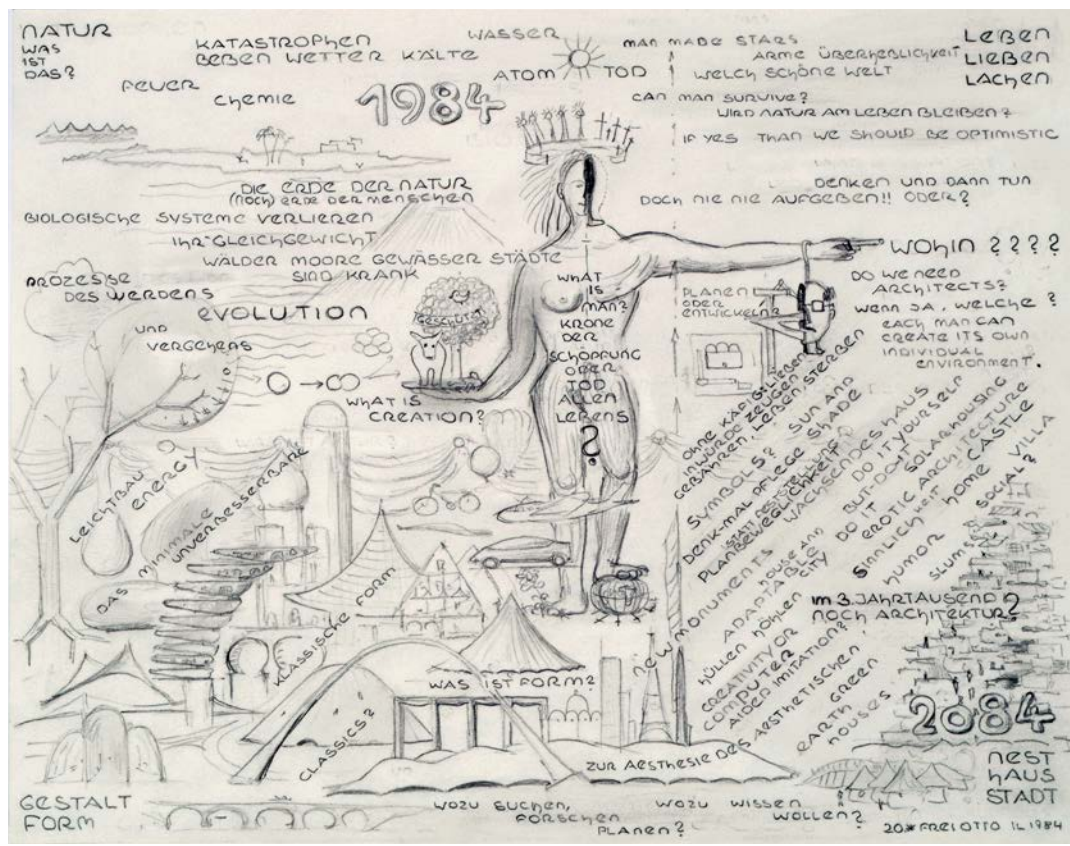 NATUR
WAS
IST
DAS?
KATASTROPHEN
BEBEN WETTER KÄLTE
WASSER
FEUER
CHEMIE
ATOM TOD
1984
MAN MADE STARS
ARME ÜBERHEBLICHKEIT
WELCH SCHÖNE WELT
LEBEN
LIEBEN
LACHEN
CAN MAN SURVIVE?
WIRD NATUR AM LEBEN BLEIBEN?
IF YES THAN WE SHOULD BE OPTIMISTIC
DIE ERDE DER NATUR
(NOCH) ERDE DER MENSCHEN
BIOLOGISCHE SYSTEME VERLIEREN
IHR GLEICHGEWICHT
WÄLDER MOORE GEWÄSSER STÄDTE
SIND KRANK
DENKEN UND DANN TUN
DOCH NIE NIE AUFGEBEN!! ODER?
PROZESSE
DES WERDENS
EVOLUTION
UND
VERGEHENS
WHAT IS
CREATION?
GESCHÜTZT
WHAT
IS
MAN?
KRONE
DER
SCHÖPFUNG
ODER
TOD
ALLEN
LEBENS
?
WOHIN ????
DO WE NEED
ARCHITECTS?
WENN JA, WELCHE?
EACH MAN CAN
CREATE ITS OWN
INDIVIDUAL
ENVIRONMENT.
PLANEN
ODER
ENTWICKELN?
OHNE KÄFIG LIEBEN
IN WÜRDE ZEUGEN
GEBÄHREN, LEBEN, STERBEN
SYMBOLS? SUN AND
SHADE
DENK-MAL PFLEGE
STATT
PLANBEWEGLICHKEIT
WACHSENDES HAUS
DO IT YOURSELF
BUT-DON'T
DO IT SOLARHOUSING
EROTIC ARCHITECTURE
SINNLICHKEIT CASTLE
HUMOR HOME VILLA
SLUMS SOCIAL?
NEW MONUMENTS
HOUSE AND
ADAPTABLE
CITY
HÜLLEN HÖHLEN
CREATIVITY OR
COMPUTER
AIDED IMITATION?
ZUR AESTHESIE DES AESTHETISCHEN
EARTH GREEN
HOUSES
IM 3. JAHRTAUSEND
NOCH ARCHITEKTUR?
2084
NEST
HAUS
STADT
LEICHTBAU
ENERGY
DAS MINIMALE
UNVERBESSERBARE
KLASSISCHE FORM
CLASSICS?
WAS IST FORM?
GESTALT
FORM
WOZU SUCHEN,
FORSCHEN
PLANEN?
WOZU WISSEN
WOLLEN?
FREI OTTO IL 1984